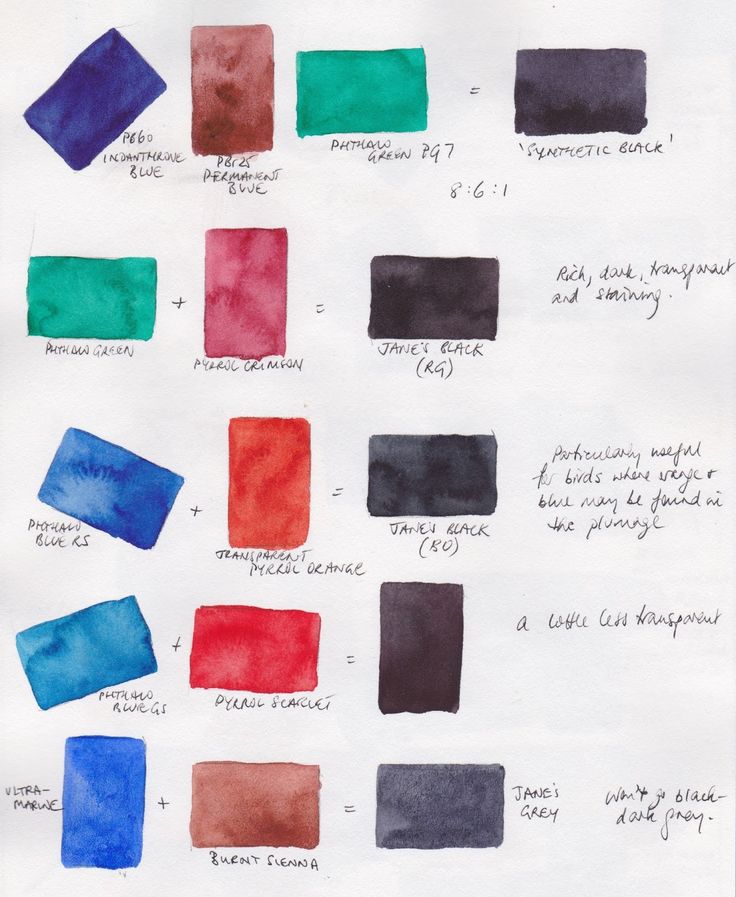 PB60
INDANTHRONE
BLUE
PBr25
PERMANENT
BLUE
PHTHALO
GREEN PG7
=
'SYNTHETIC BLACK'
8:6:1
PHTHALO GREEN
+
PYRROL CRIMSON
=
JANE'S BLACK
(RG)
Rich, dark, transparent
and staining.
PHTHALO
BLUE RS
+
TRANSPARENT
PYRROL ORANGE
=
JANE'S BLACK
(BO)
Particularly useful
for birds where orange +
blue may be found in
the plumage
PHTHALO
BLUE GS
+
PYRROL SCARLET
=
a little less transparent
ULTRA-
MARINE
+
BURNT SIENNA
=
JANE'S
GREY
Won't go black-
dark grey.